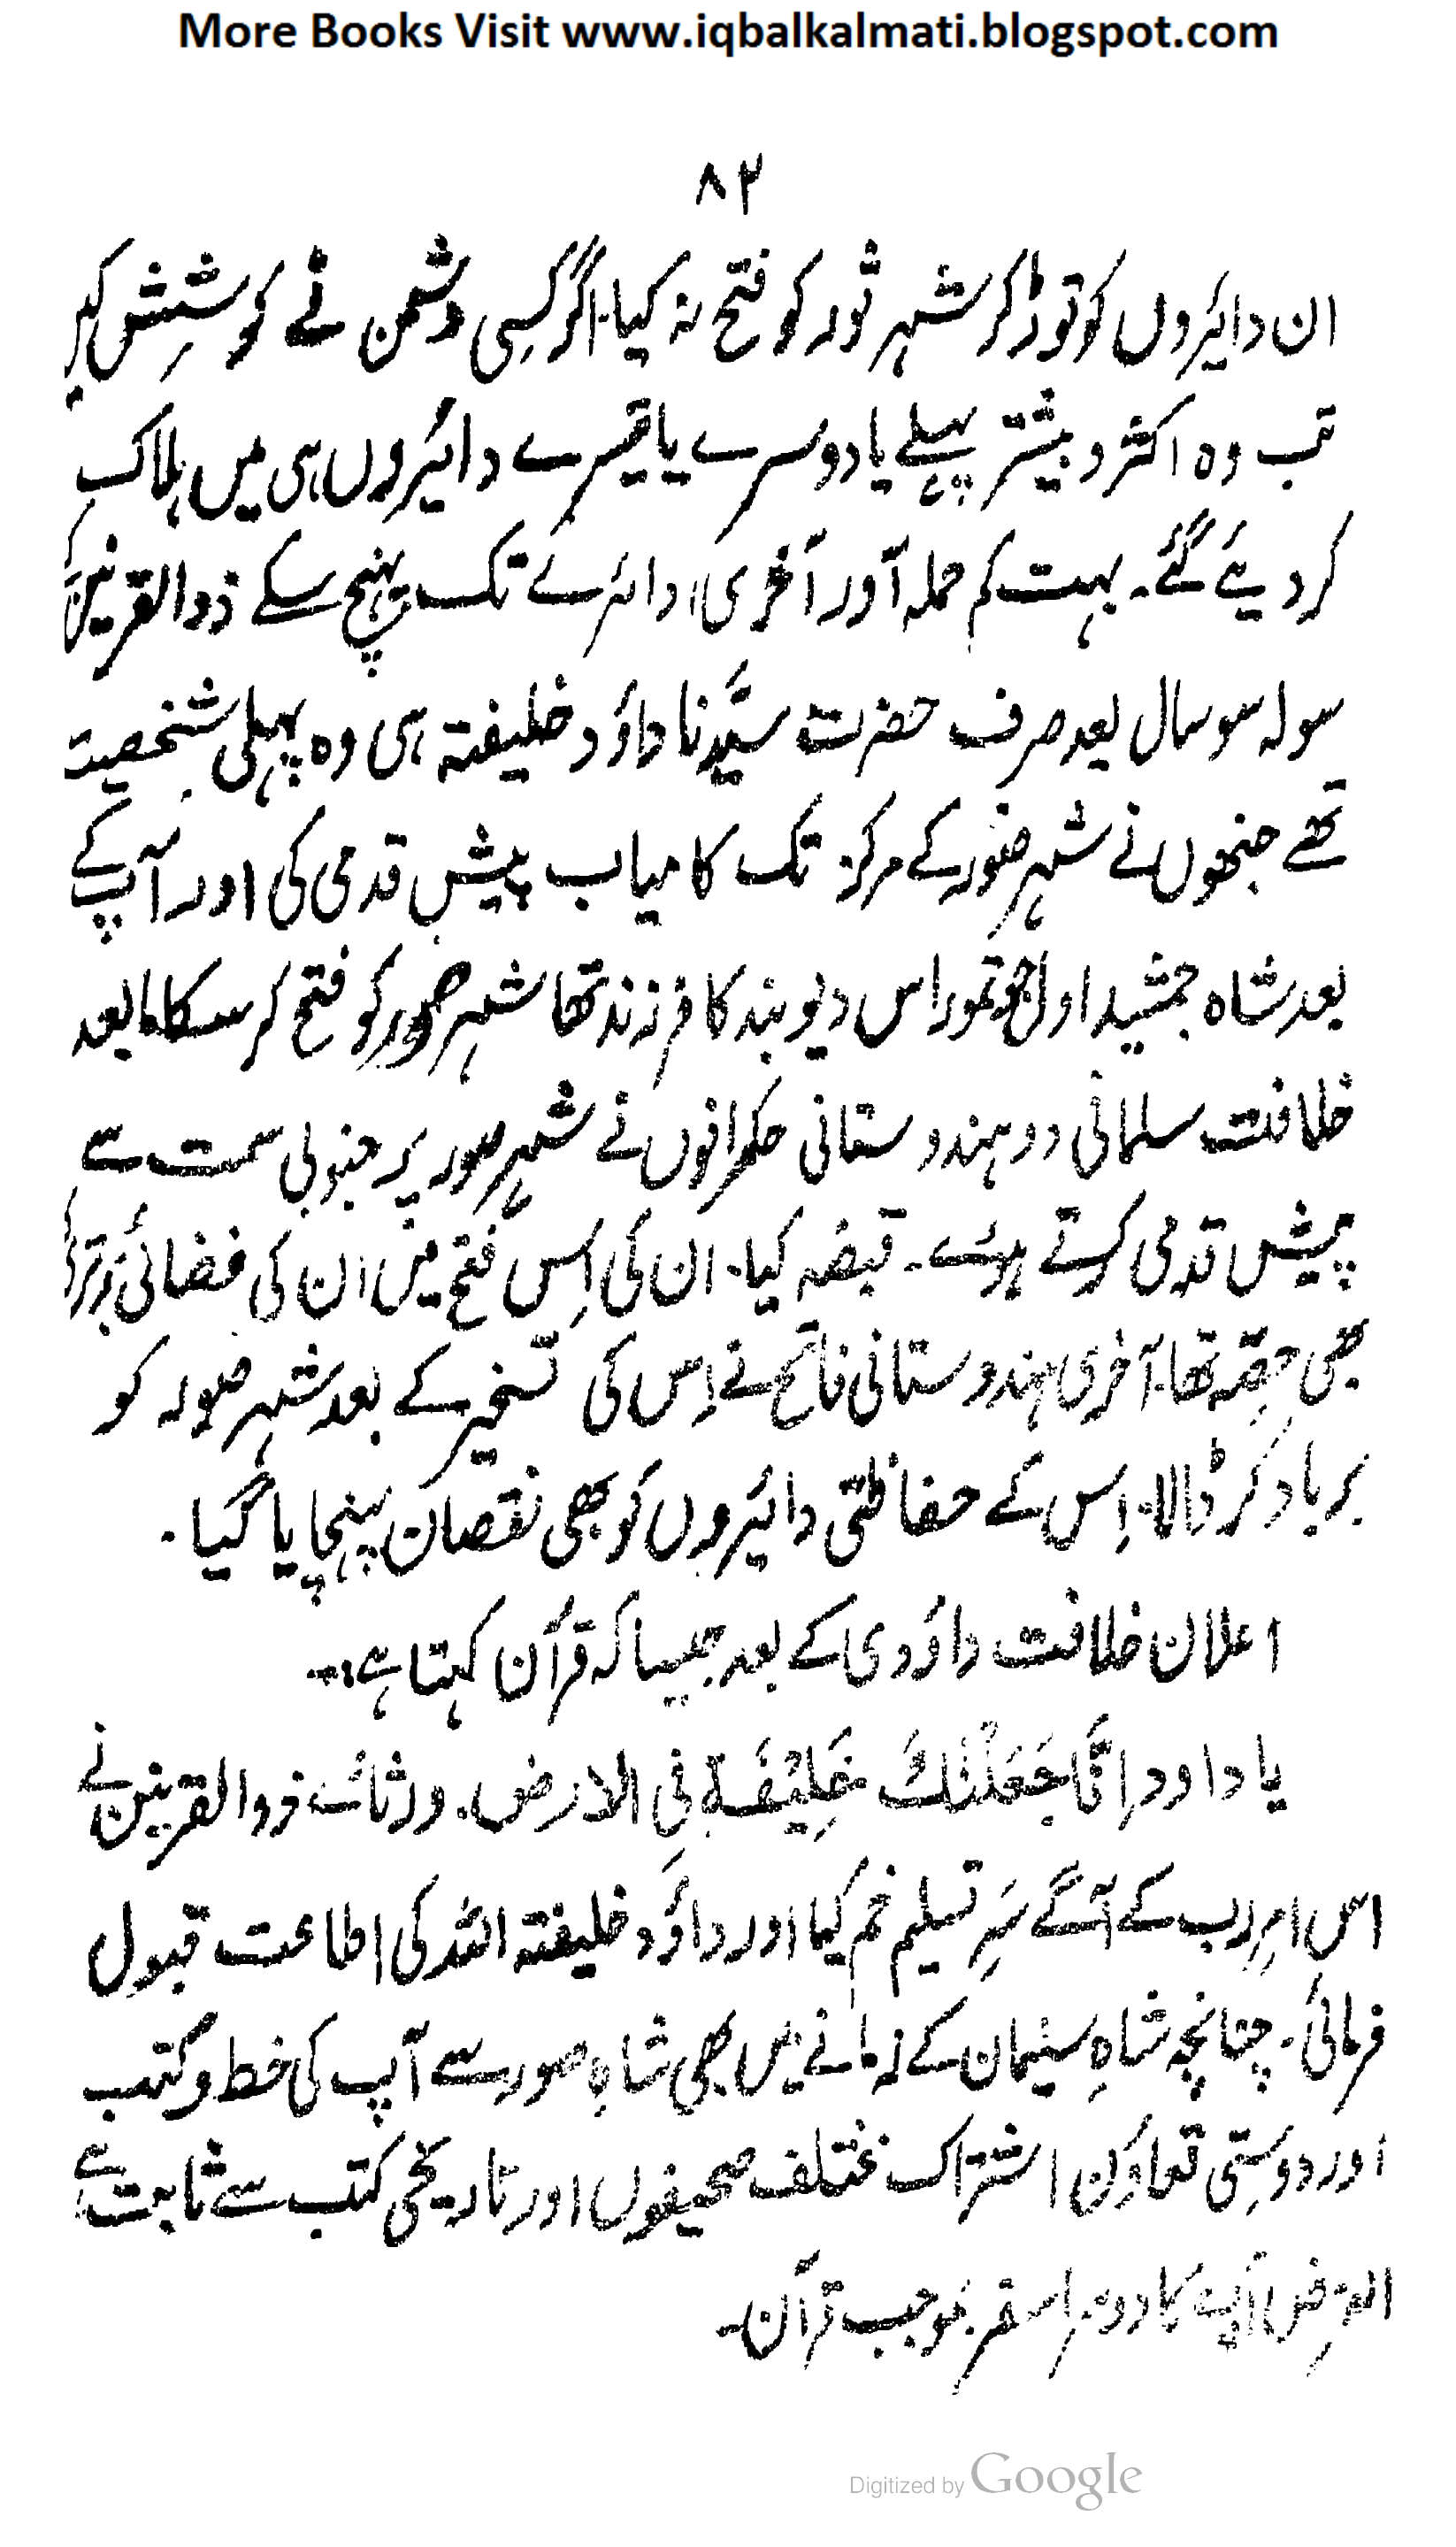 More Books Visit www.iqbalkalmati.blogspot.com
۸۲
ان دائیروں کو توڑ کر شہر ثور کو فتح نہ کیا۔ اگر کسِی دشمن نے کوشِشش کی
تب وہ اکثر و بیشتر پہلے یا دوسرے یا تیسرے دائیروں ہی میں ہلاک
کر دیئے گئے۔ بہت کم حملہ آور آخری دائرے تک پہنچ سکے ذوالقرنین کے
سولہ سو سال بعد صرف حضرت سیّدنا داؤد خلیفتہ ہی وہ پہلی شخصیت
تھے جنھوں نے شہر صور کے مرکز تک کامیاب پیش قدمی کی اور آپ کے
بعد شاہ جمشید اول جو تمورا س دیوبند کا فرزند تھا شہر صور کو فتح کر سکا۔ مابعد
خلافت سلمانی دو ہندوستانی حکمرانوں نے شہر صور پر جنوبی سمت سے
پیش قدمی کرتے ہوئے۔ قبضہ کیا۔ ان کی اِس فتح میں ان کی فضائی برتری کا
بھی حِصّہ تھا۔ آخری ہندوستانی فاتح نے اِس کی تسخیر کے بعد شہر صور کو
برباد کر ڈالا۔ اِس کے حفاظتی دائیروں کو بھی نقصان پہنچایا گیا۔
اعلان خلافت داؤدی کے بعد جیسا کہ قرآن کہتا ہے:۔
یا داود اِنَّا جَعَلْنٰکَ خَلِیْفَۃ فِی الارض۔ ورثائے ذوالقرنین نے
اس امرِ رب کے آگے سَرِ تسلیم خم کیا اور داؤد خلیفتہ اللہ کی اطاعت قبول
فرمائی۔ چنانچہ شاہِ سلیمان کے زمانے میں بھی شاہِ صور سے آپ کی خط و کتب
اور دوستِی تعاوُن اشتراک مختلف صحیفوں اور تاریخی کتب سے ثابت ہے
الغرض آپ کا دوسرا سفر بموجب قرآن۔
Digitized by Google